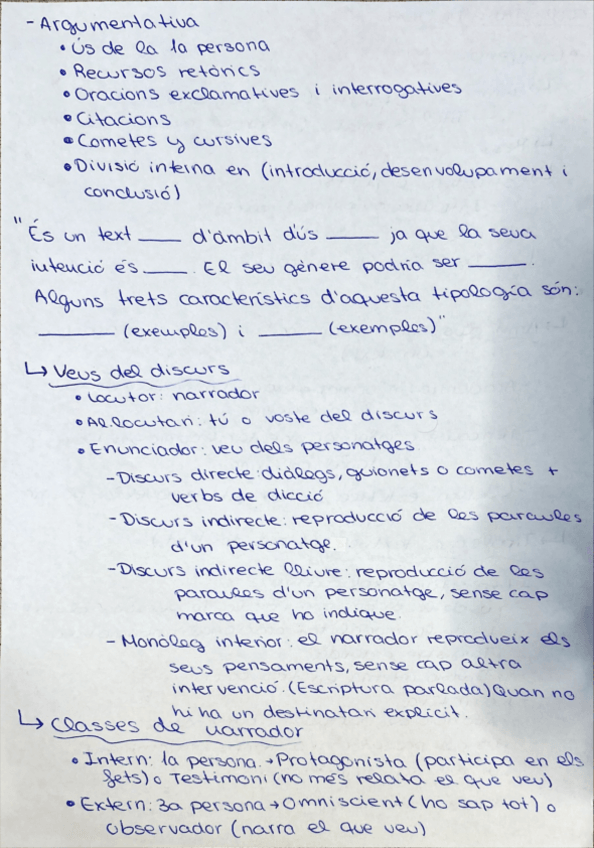 - Argumentativa
• Ús de la 1a persona
• Recursos retòrics
• Oracions exclamatives i interrogatives
• Citacions
• Cometes y cursives
• Divisió interna en (introducció, desenvolupament i
conclusió)
"És un text ___ d'àmbit d'ús ___ ja que la seva
intenció és ___. El seu gènere podria ser ___.
Alguns trets característics d'aquesta tipologia són:
___ (exemples) i ___ (exemples)"
↳ Veus del discurs
• Locutor: narrador
• Al.locutari: tú o voste del discurs
• Enunciador: veu dels personatges
- Discurs directe: diàlegs, guionets o cometes +
verbs de dicció
- Discurs indirecte: reproducció de les paraules
d'un personatge.
- Discurs indirecte lliure: reproducció de les
paraules d'un personatge, sense cap
marca que ho indique.
- Monòleg interior: el narrador reprodueix els
seus pensaments, sense cap altra
intervenció. (Escriptura parlada) Quan no
hi ha un destinatari explícit.
↳ Classes de narrador
• Intern: 1a persona. → Protagonista (participa en els
fets) o Testimoni (no més relata el que veu)
• Extern: 3a persona → Omniscient (ho sap tot) o
observador (narra el que veu)